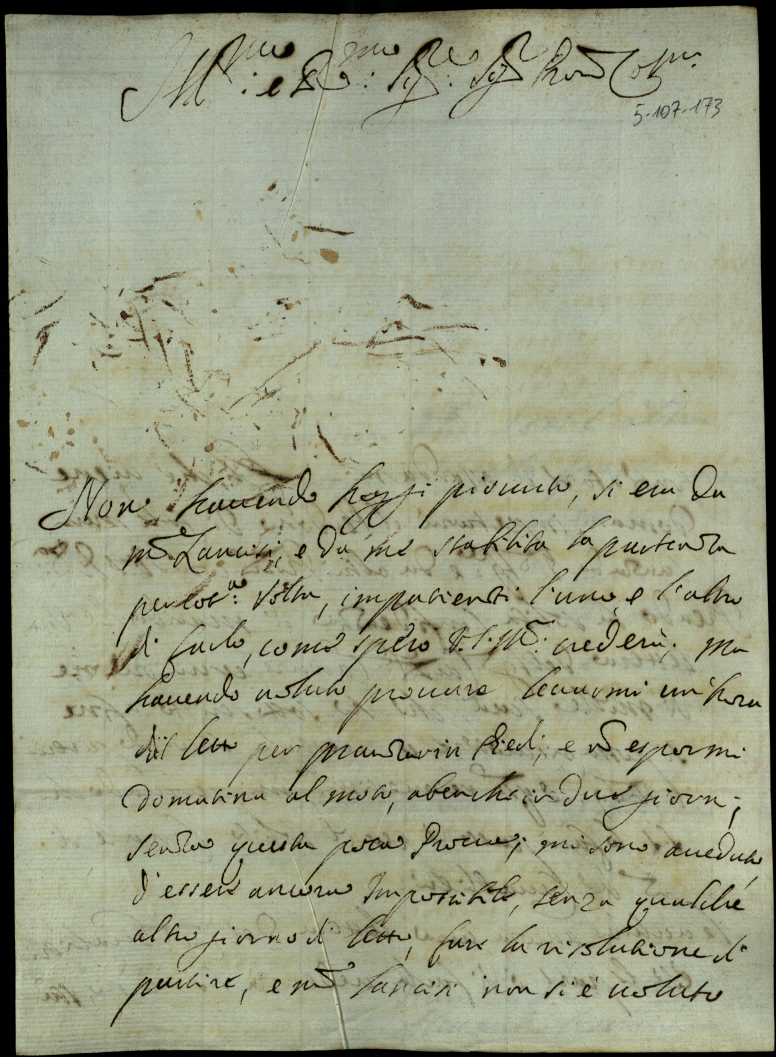 Ill.mo: e R.mo: Sig.re: Sig.r Pron Col.mo
5-107-173
Non havendo hoggi piovuto, si era da
m.r Lancisi, e da me stabilita la partenza
per cot.a: volta, impatienti l'uno, e l'altro
di farlo, come spero V.S. Ill.ma: crederà; ma
havendo voluto provare levarmi un'hora
dal letto per pranzar in Piedi, e no espormi
domatina al moto, abenche in due giorni,
senza questa poca Prova; mi sono aveduto,
d'essere ancora Impossibile, senza qualche
altro giorno di letto, fare la risolutione di
partire, e m.r Lancisi non si è voluto